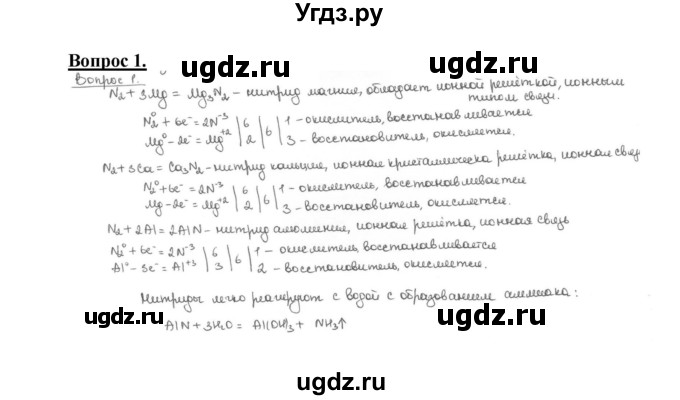 Угдз.ру
Вопрос 1.
Вопрос 1.
ugdz.ru ugdz.ru
N₂ + 3Mg = Mg₃N₂ - нитрид магния, обладает ионной решёткой, ионным
типом связи.
N₂⁰ + 6e⁻ = 2N⁻³ | 6 | 6 | 1 - окислитель, восстанавливается
Mg⁰ - 2e⁻ = Mg⁺² | 2 | 3 - восстановитель, окисляется.
N₂ + 3Ca = Ca₃N₂ - нитрид кальция, ионная кристаллическа решётка, ионная связ
N₂⁰ + 6e⁻ = 2N⁻³ | 6 | 6 | 1 - окислитель, восстанавливается
Mg - 2e⁻ = Mg⁺² | 2 | 3 - восстановитель, окисляется.
ugdz.ru ugdz.ru
N₂ + 2Al = 2AlN - нитрид алюминия, ионная решётка, ионная связь
N₂⁰ + 6e⁻ = 2N⁻³ | 6 | 6 | 1 - окислитель, восстанавливается
Al⁰ - 3e⁻ = Al⁺³ | 3 | 2 - восстановитель, окисляется.
Нитриды легко реагируют с водой с образованием аммиака:
AlN + 3H₂O = Al(OH)₃ + NH₃↑
ugdz.ru ugdz.ru
ugdz.ru